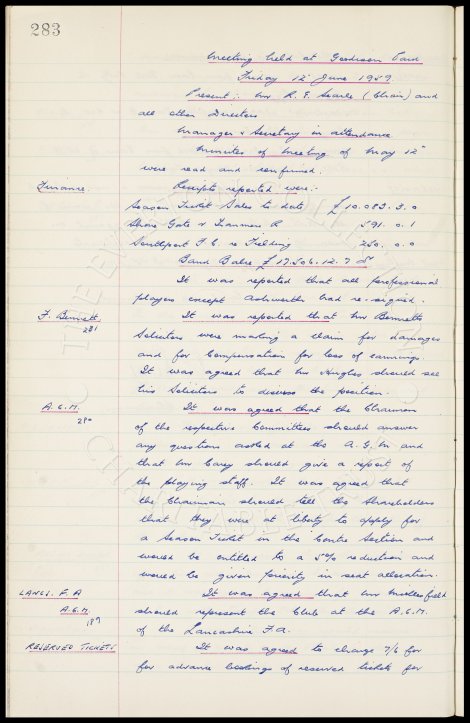 283
Meeting held at Goodison Park
Friday 12th June 1959.
Present: Mr R. E. Searle (Chair) and
all other Directors
Manager & Secretary in attendance
Minutes of Meeting of May 12th
were read and confirmed.
Finance. Receipts reported were:-
Season Ticket Sales to date £10.083.3.0
Share Gate v Tranmere R 591.0.1
Southport F.C. re Fielding 250.0.0
Bank Balce £17.506.12.7
It was reported that all professional
players except Ashworth had re-signed.
F. Bennett. It was reported that Mr Bennetts
281 Solicitors were making a claim for damages
and for Compensation for loss of earnings.
It was agreed that Mr Hughes should see
his Solicitors to discuss the position.
A.G.M. It was agreed that the Chairman
280 of the respective Committees should answer
any questions asked at the A.G.M. and
that Mr Carey should give a report of
the playing staff. It was agreed that
the Chairman should tell the Shareholders
that they were at liberty to apply for
a Season Ticket in the Centre Section and
would be entitled to a 5% reduction and
would be given priority in seat allocation.
LANCS. F.A It was agreed that Mr Micklesfield
A.G.M. should represent the Club at the A.G.M.
189 of the Lancashire F.A.
RESERVED TICKETS It was agreed to charge 7/6 for
for advance bookings of reserved tickets for